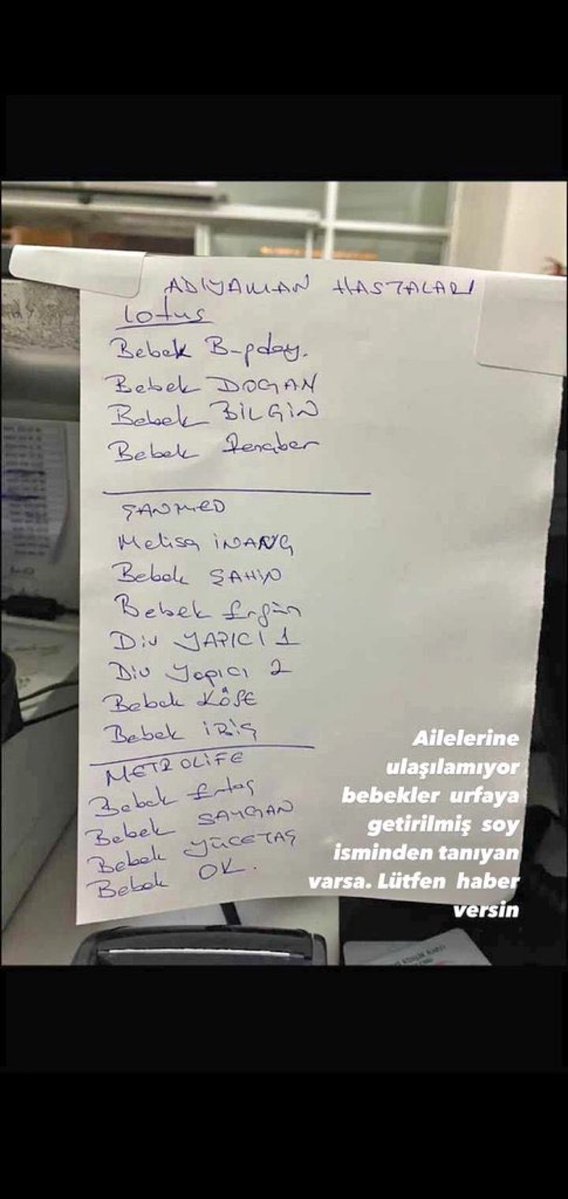 ADIYAMAN HASTALARI
Lotus
Bebek
Bebek DOGAN
Bebek BİLGİN
Bebek Rençber
ŞANMED
Melisa İNANÇ
Bebek ŞAHİN
Bebek Ergün
Div YAPICI 1
Div Yapıcı 2
Bebek KÖSE
Bebek İBİŞ
METROLİFE
Bebek Ertaş
Bebek SAYGAN
Bebek YÜCETAŞ
Bebek OK.
Ailelerine
ulaşılamıyor
bebekler urfaya
getirilmiş soy
isminden tanıyan
varsa. Lütfen haber
versin